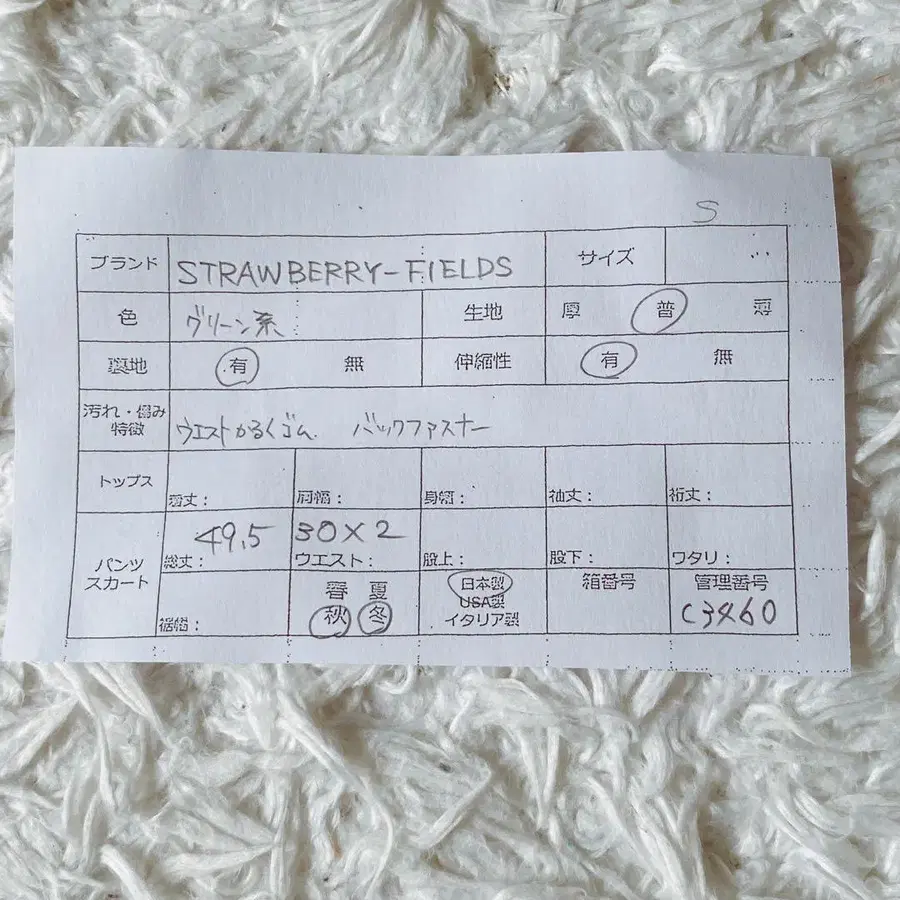 S
ブランド STRAWBERRY-FIELDS サイズ ...
色 グリーン系 生地 厚 普 薄
裏地 有 無 伸縮性 有 無
汚れ・傷み
特徴 ウエストかるくゴム. バックファスナー
トップス 着丈: 肩幅: 身幅: 袖丈: 裄丈:
パンツ
スカート 49.5 30×2
総丈: ウエスト: 股上: 股下: ワタリ:
裾幅: 春 夏
秋 冬
日本製
USA製
イタリア製
箱番号
管理番号
C3460